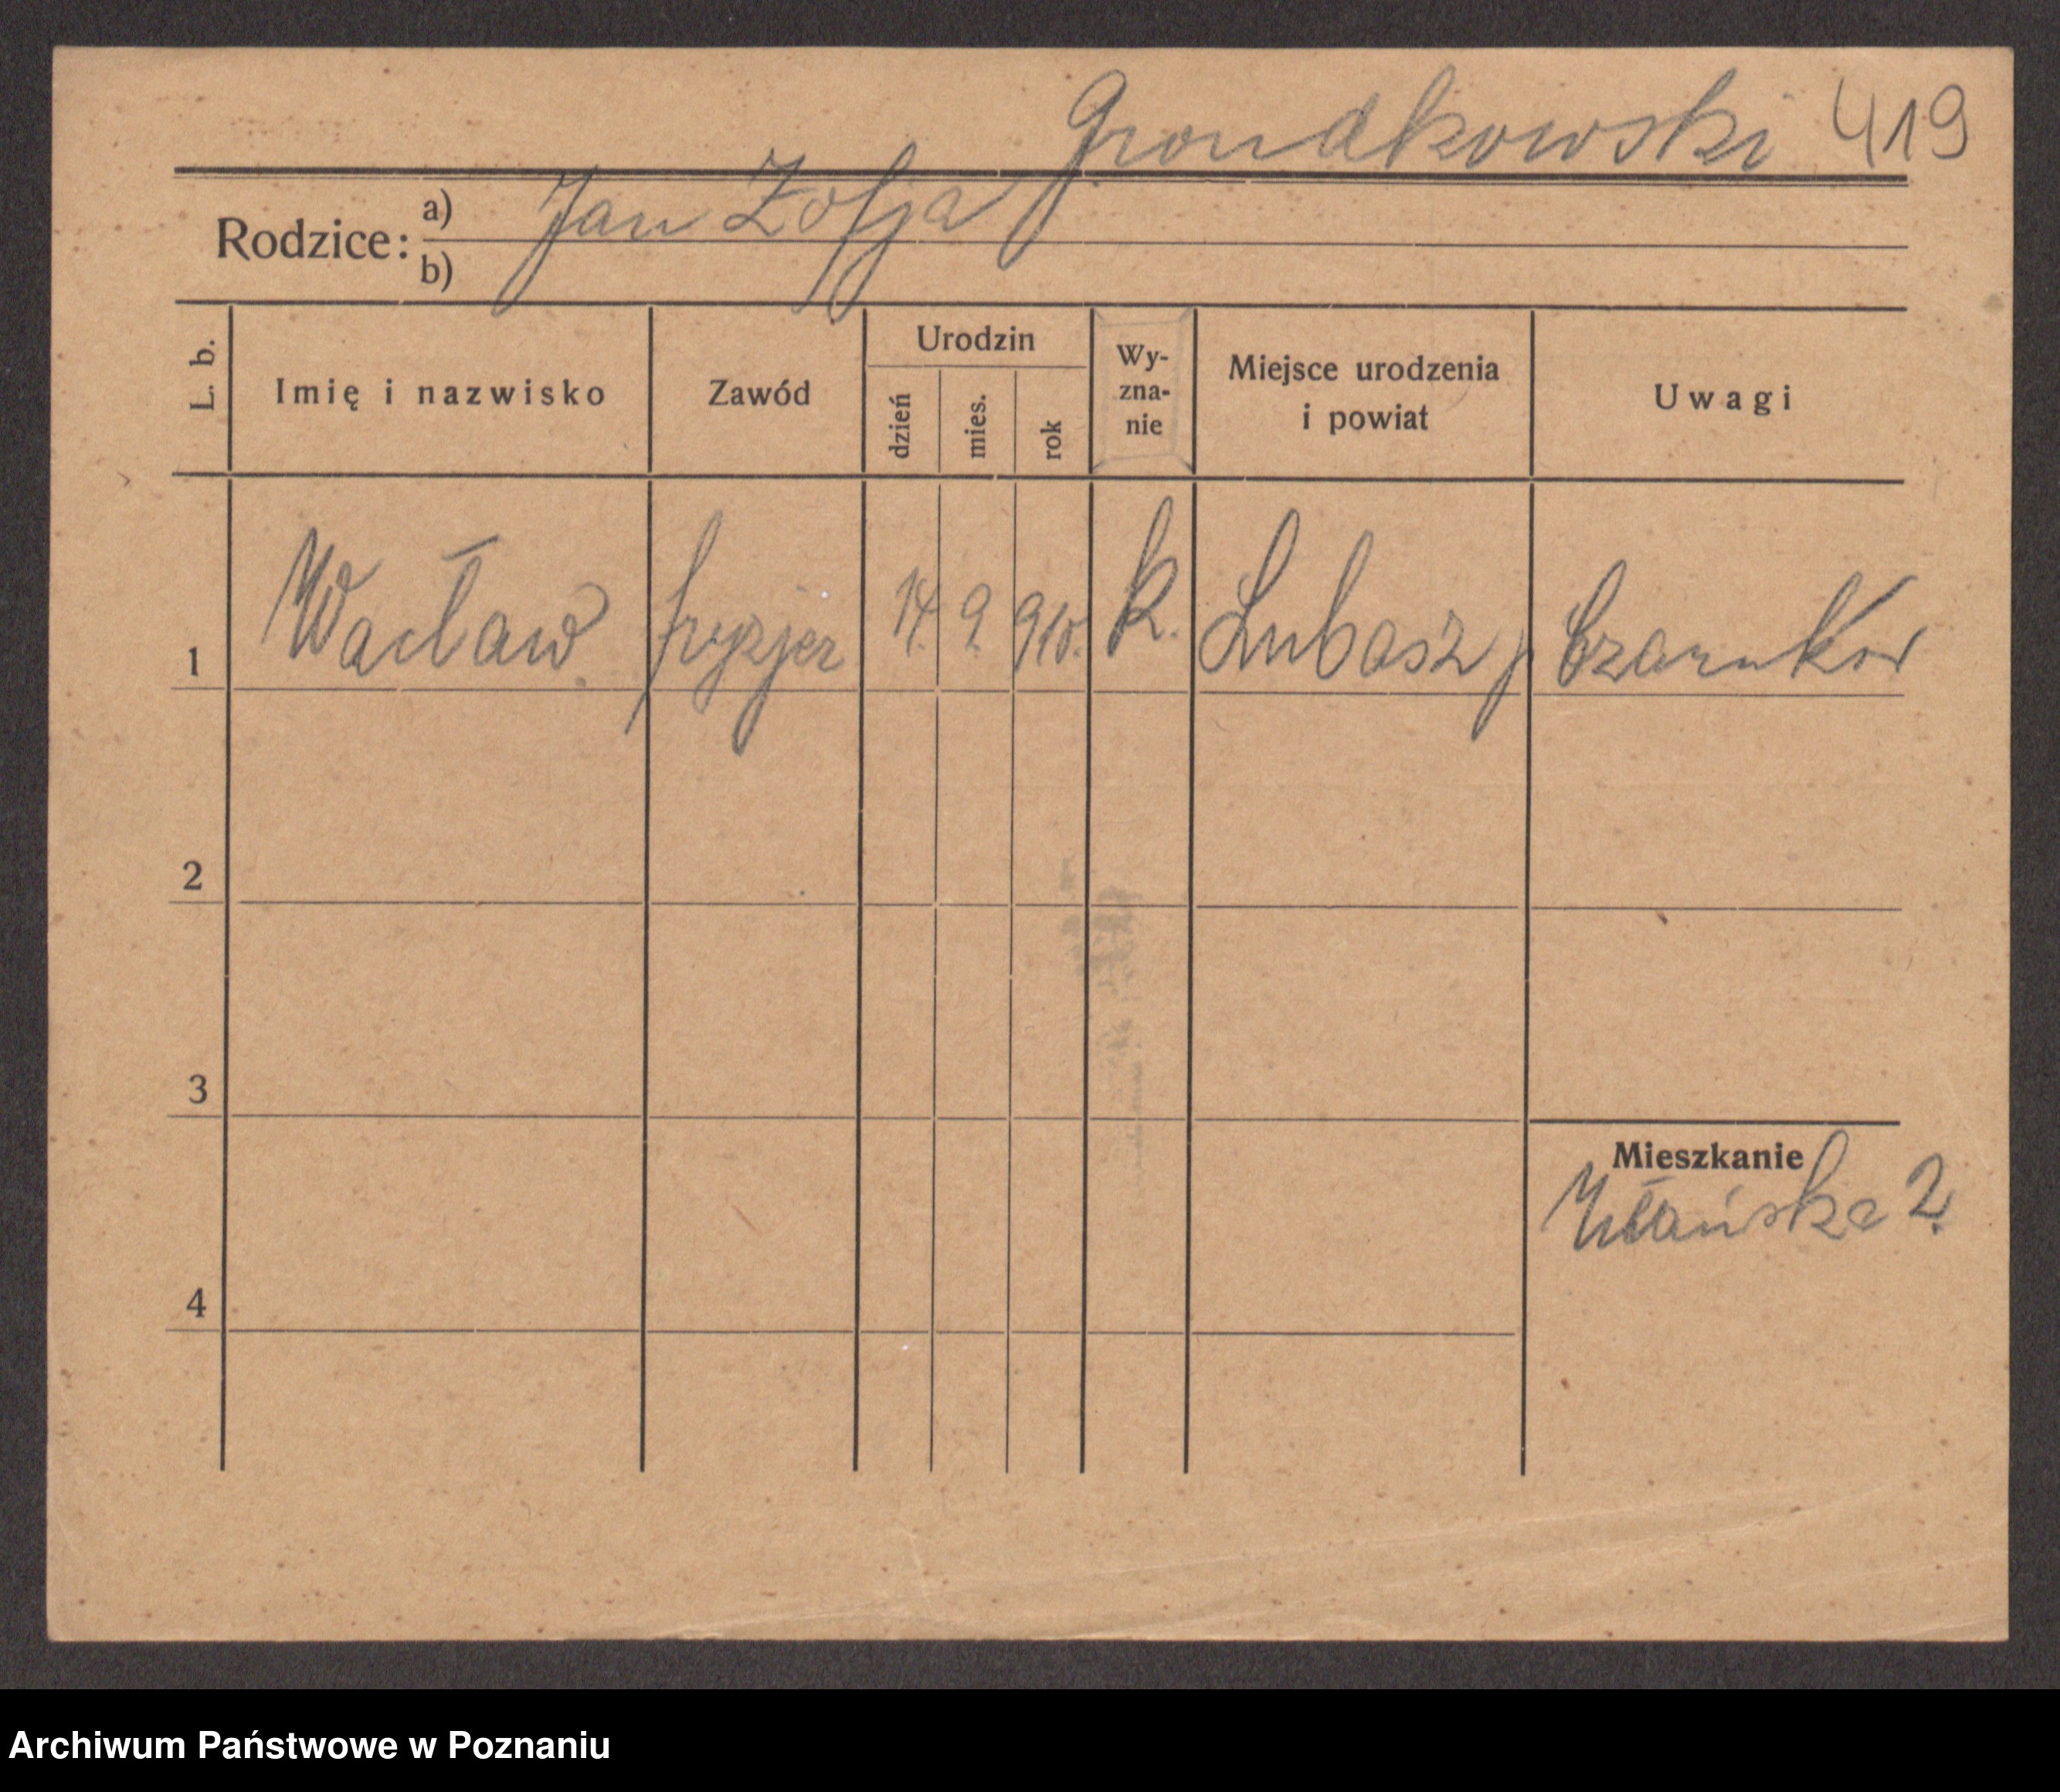 Grondkowski 419
Rodzice: a) Jan Zofja
b)
L. b. Imię i nazwisko Zawód Urodzin dzień mies. rok Wy-zna-nie Miejsce urodzenia i powiat Uwagi
1 Wacław fryzjer 14. 9. 910. k. Lubasz p Czarnków
2
3
Mieszkanie
Ułańska 2.
4
Archiwum Państwowe w Poznaniu